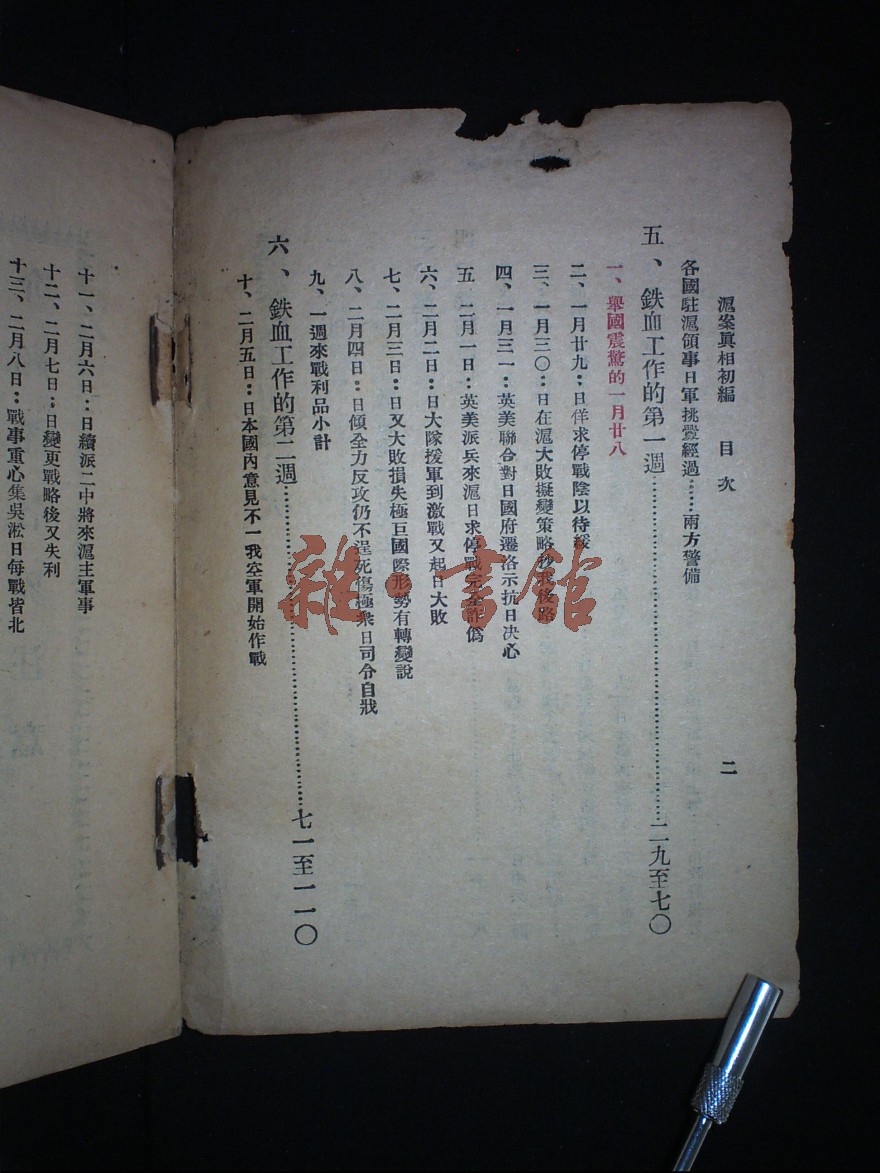 滬案眞相初編 目次 二
各國駐滬領事日軍挑釁經過……兩方警備
五、鉄血工作的第一週……二九至七〇
一、舉國震驚的一月廿八
二、一月廿九：日佯求停戰陰以待緩
三、一月三〇：日在滬大敗擬變策略抄我後路
四、一月三一：英美聯合對日國府遷洛示抗日決心
五 二月一日：英美派兵來滬日求停戰完全詐僞
六、二月二日：日大隊援軍到激戰又起日大敗
七、二月三日：日又大敗損失極巨國際形勢有轉變說
八、二月四日：日傾全力反攻仍不逞死傷極衆日司令自戕
九、一週來戰利品小計
六、鉄血工作的第二週……七一至一一〇
十、二月五日：日本國內意見不一我空軍開始作戰
十一、二月六日：日續派二中將來滬主軍事
十二、二月七日：日變更戰略後又失利
十三、二月八日：戰事重心集吳淞日每戰皆北
雜·書館